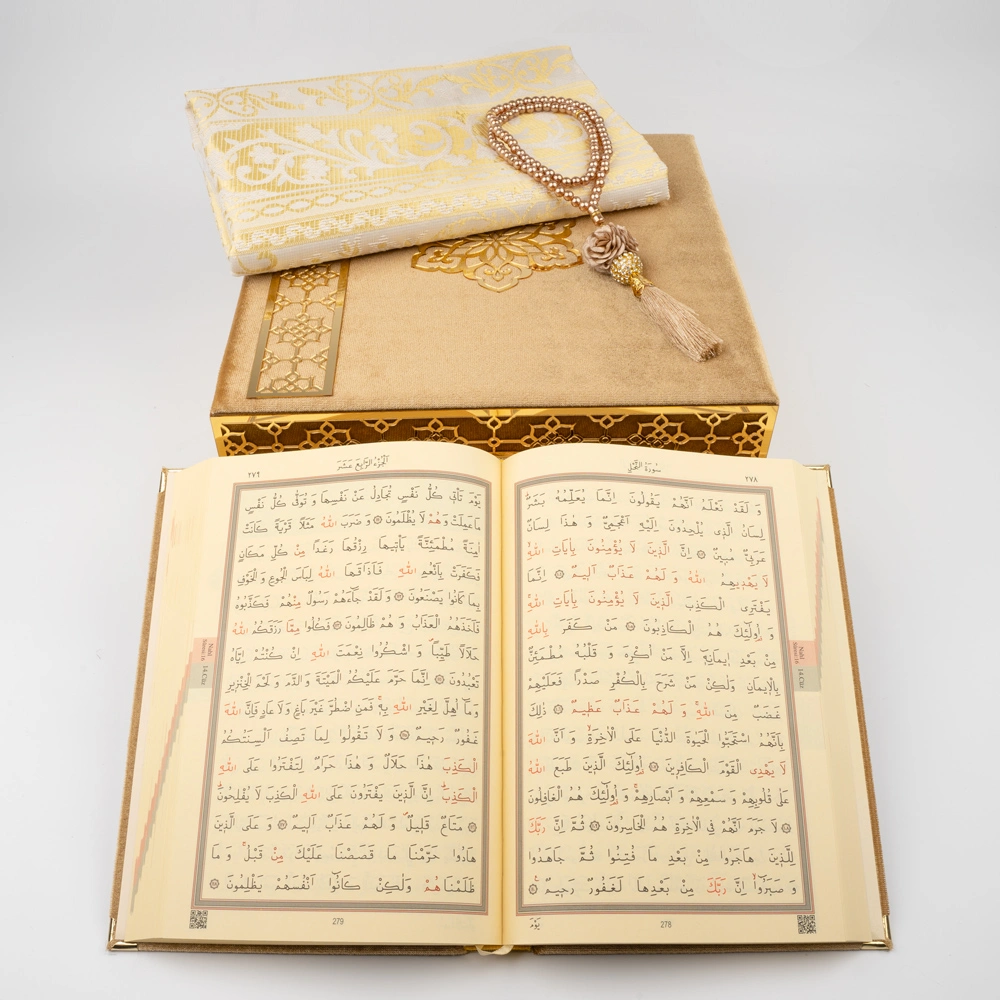 سورة النحل
٢٧٨
وَ لَقَدْ نَعْلَمُ اَنَّهُمْ يَقُولُونَ اِنَّمَا يُعَلِّمُهُ بَشَرٌ
لِسَانُ الَّذِى يُلْحِدُونَ اِلَيْهِ اَعْجَمِىٌّ وَ هٰذَا لِسَانٌ
عَرَبِىٌّ مُبِينٌ ۞ اِنَّ الَّذِينَ لَا يُؤْمِنُونَ بِاٰيَاتِ اللّٰهِ
لَا يَهْدِيهِمُ اللّٰهُ وَ لَهُمْ عَذَابٌ اَلِيمٌ ۞ اِنَّمَا
يَفْتَرِى الْكَذِبَ الَّذِينَ لَا يُؤْمِنُونَ بِاٰيَاتِ اللّٰهِ
وَ اُولٰٓئِكَ هُمُ الْكَاذِبُونَ ۞ مَنْ كَفَرَ بِاللّٰهِ
مِنْ بَعْدِ اِيمَانِهِ اِلَّا مَنْ اُكْرِهَ وَ قَلْبُهُ مُطْمَئِنٌّ
بِالْاِيمَانِ وَلٰكِنْ مَنْ شَرَحَ بِالْكُفْرِ صَدْرًا فَعَلَيْهِمْ
غَضَبٌ مِنَ اللّٰهِ وَ لَهُمْ عَذَابٌ عَظِيمٌ ۞ ذٰلِكَ
بِاَنَّهُمُ اسْتَحَبُّوا الْحَيٰوةَ الدُّنْيَا عَلَى الْاٰخِرَةِ وَ اَنَّ اللّٰهَ
لَا يَهْدِى الْقَوْمَ الْكَافِرِينَ ۞ اُولٰٓئِكَ الَّذِينَ طَبَعَ اللّٰهُ
عَلٰى قُلُوبِهِمْ وَ سَمْعِهِمْ وَ اَبْصَارِهِمْ وَ اُولٰٓئِكَ هُمُ الْغَافِلُونَ
۞ لَا جَرَمَ اَنَّهُمْ فِى الْاٰخِرَةِ هُمُ الْخَاسِرُونَ ۞ ثُمَّ اِنَّ رَبَّكَ
لِلَّذِينَ هَاجَرُوا مِنْ بَعْدِ مَا فُتِنُوا ثُمَّ جَاهَدُوا
وَ صَبَرُوٓا اِنَّ رَبَّكَ مِنْ بَعْدِهَا لَغَفُورٌ رَحِيمٌ ۞
يَوْمَ
278
Nahl
Sûresi 16
14.Cüz
الجزء الرابع عشر
٢٧٩
يَوْمَ تَأْتِى كُلُّ نَفْسٍ تُجَادِلُ عَنْ نَفْسِهَا وَ تُوَفّٰى كُلُّ نَفْسٍ
مَا عَمِلَتْ وَهُمْ لَا يُظْلَمُونَ ۞ وَ ضَرَبَ اللّٰهُ مَثَلًا قَرْيَةً كَانَتْ
اٰمِنَةً مُطْمَئِنَّةً يَأْتِيهَا رِزْقُهَا رَغَدًا مِنْ كُلِّ مَكَانٍ
فَكَفَرَتْ بِاَنْعُمِ اللّٰهِ فَاَذَاقَهَا اللّٰهُ لِبَاسَ الْجُوعِ وَ الْخَوْفِ
بِمَا كَانُوا يَصْنَعُونَ ۞ وَ لَقَدْ جَٓاءَهُمْ رَسُولٌ مِنْهُمْ فَكَذَّبُوهُ
فَاَخَذَهُمُ الْعَذَابُ وَ هُمْ ظَالِمُونَ ۞ فَكُلُوا مِمَّا رَزَقَكُمُ اللّٰهُ
حَلَالًا طَيِّبًا وَ اشْكُرُوا نِعْمَتَ اللّٰهِ اِنْ كُنْتُمْ اِيَّاهُ
تَعْبُدُونَ ۞ اِنَّمَا حَرَّمَ عَلَيْكُمُ الْمَيْتَةَ وَ الدَّمَ وَ لَحْمَ الْخِنْزِيرِ
وَ مَٓا اُهِلَّ لِغَيْرِ اللّٰهِ بِهِ فَمَنِ اضْطُرَّ غَيْرَ بَاغٍ وَ لَا عَادٍ فَاِنَّ اللّٰهَ
غَفُورٌ رَحِيمٌ ۞ وَ لَا تَقُولُوا لِمَا تَصِفُ اَلْسِنَتُكُمُ
الْكَذِبَ هٰذَا حَلَالٌ وَ هٰذَا حَرَامٌ لِتَفْتَرُوا عَلَى اللّٰهِ
الْكَذِبَ اِنَّ الَّذِينَ يَفْتَرُونَ عَلَى اللّٰهِ الْكَذِبَ لَا يُفْلِحُونَ
۞ مَتَاعٌ قَلِيلٌ وَ لَهُمْ عَذَابٌ اَلِيمٌ ۞ وَ عَلَى الَّذِينَ
هَادُوا حَرَّمْنَا مَا قَصَصْنَا عَلَيْكَ مِنْ قَبْلُ وَ مَا
ظَلَمْنَاهُمْ وَلٰكِنْ كَانُٓوا اَنْفُسَهُمْ يَظْلِمُونَ ۞
279
Nahl
Sûresi 16
14.Cüz